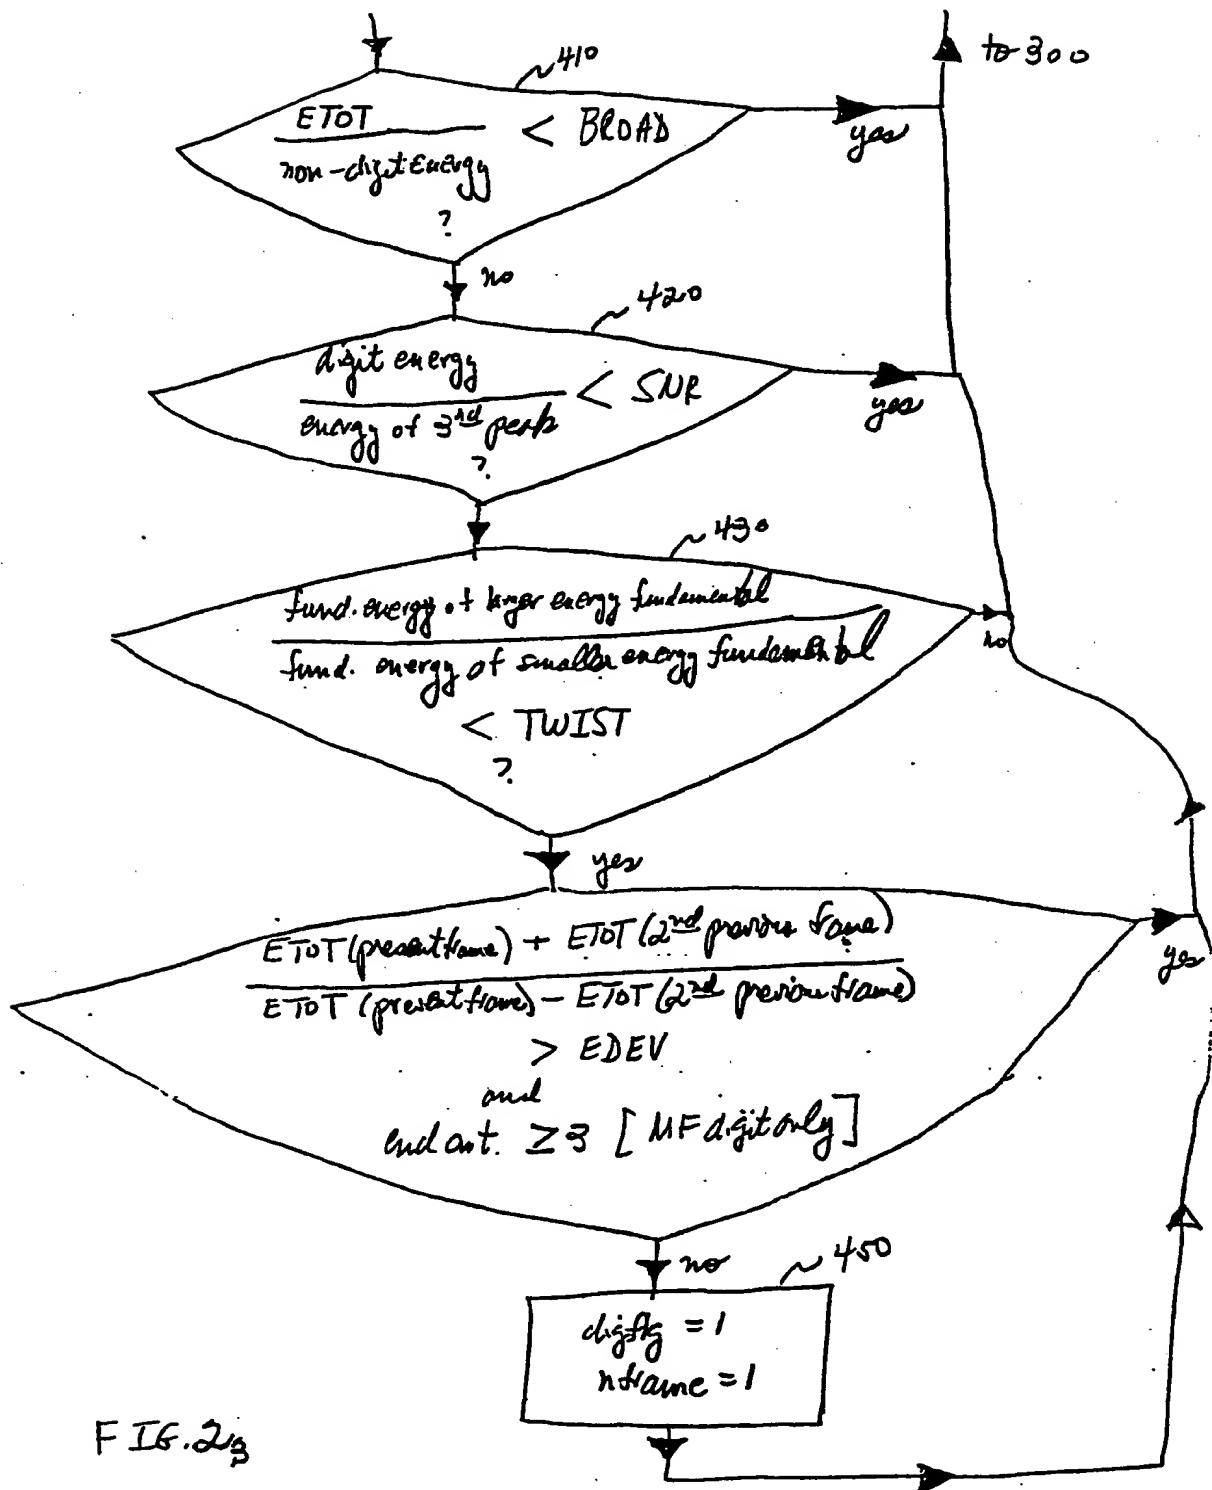 to 300
410
ETOT
< BROAD
non-digit energy
?
yes
no
420
digit energy
< SNR
energy of 3rd peak
?
yes
430
fund. energy of larger energy fundamental
fund. energy of smaller energy fundamental
< TWIST
?
no
yes
ETOT (present frame) + ETOT (2nd previous frame)
ETOT (present frame) - ETOT (2nd previous frame)
> EDEV
and
end cnt. ≥ 3 [MF digit only]
yes
no
450
digflg = 1
nframe = 1
FIG. 23